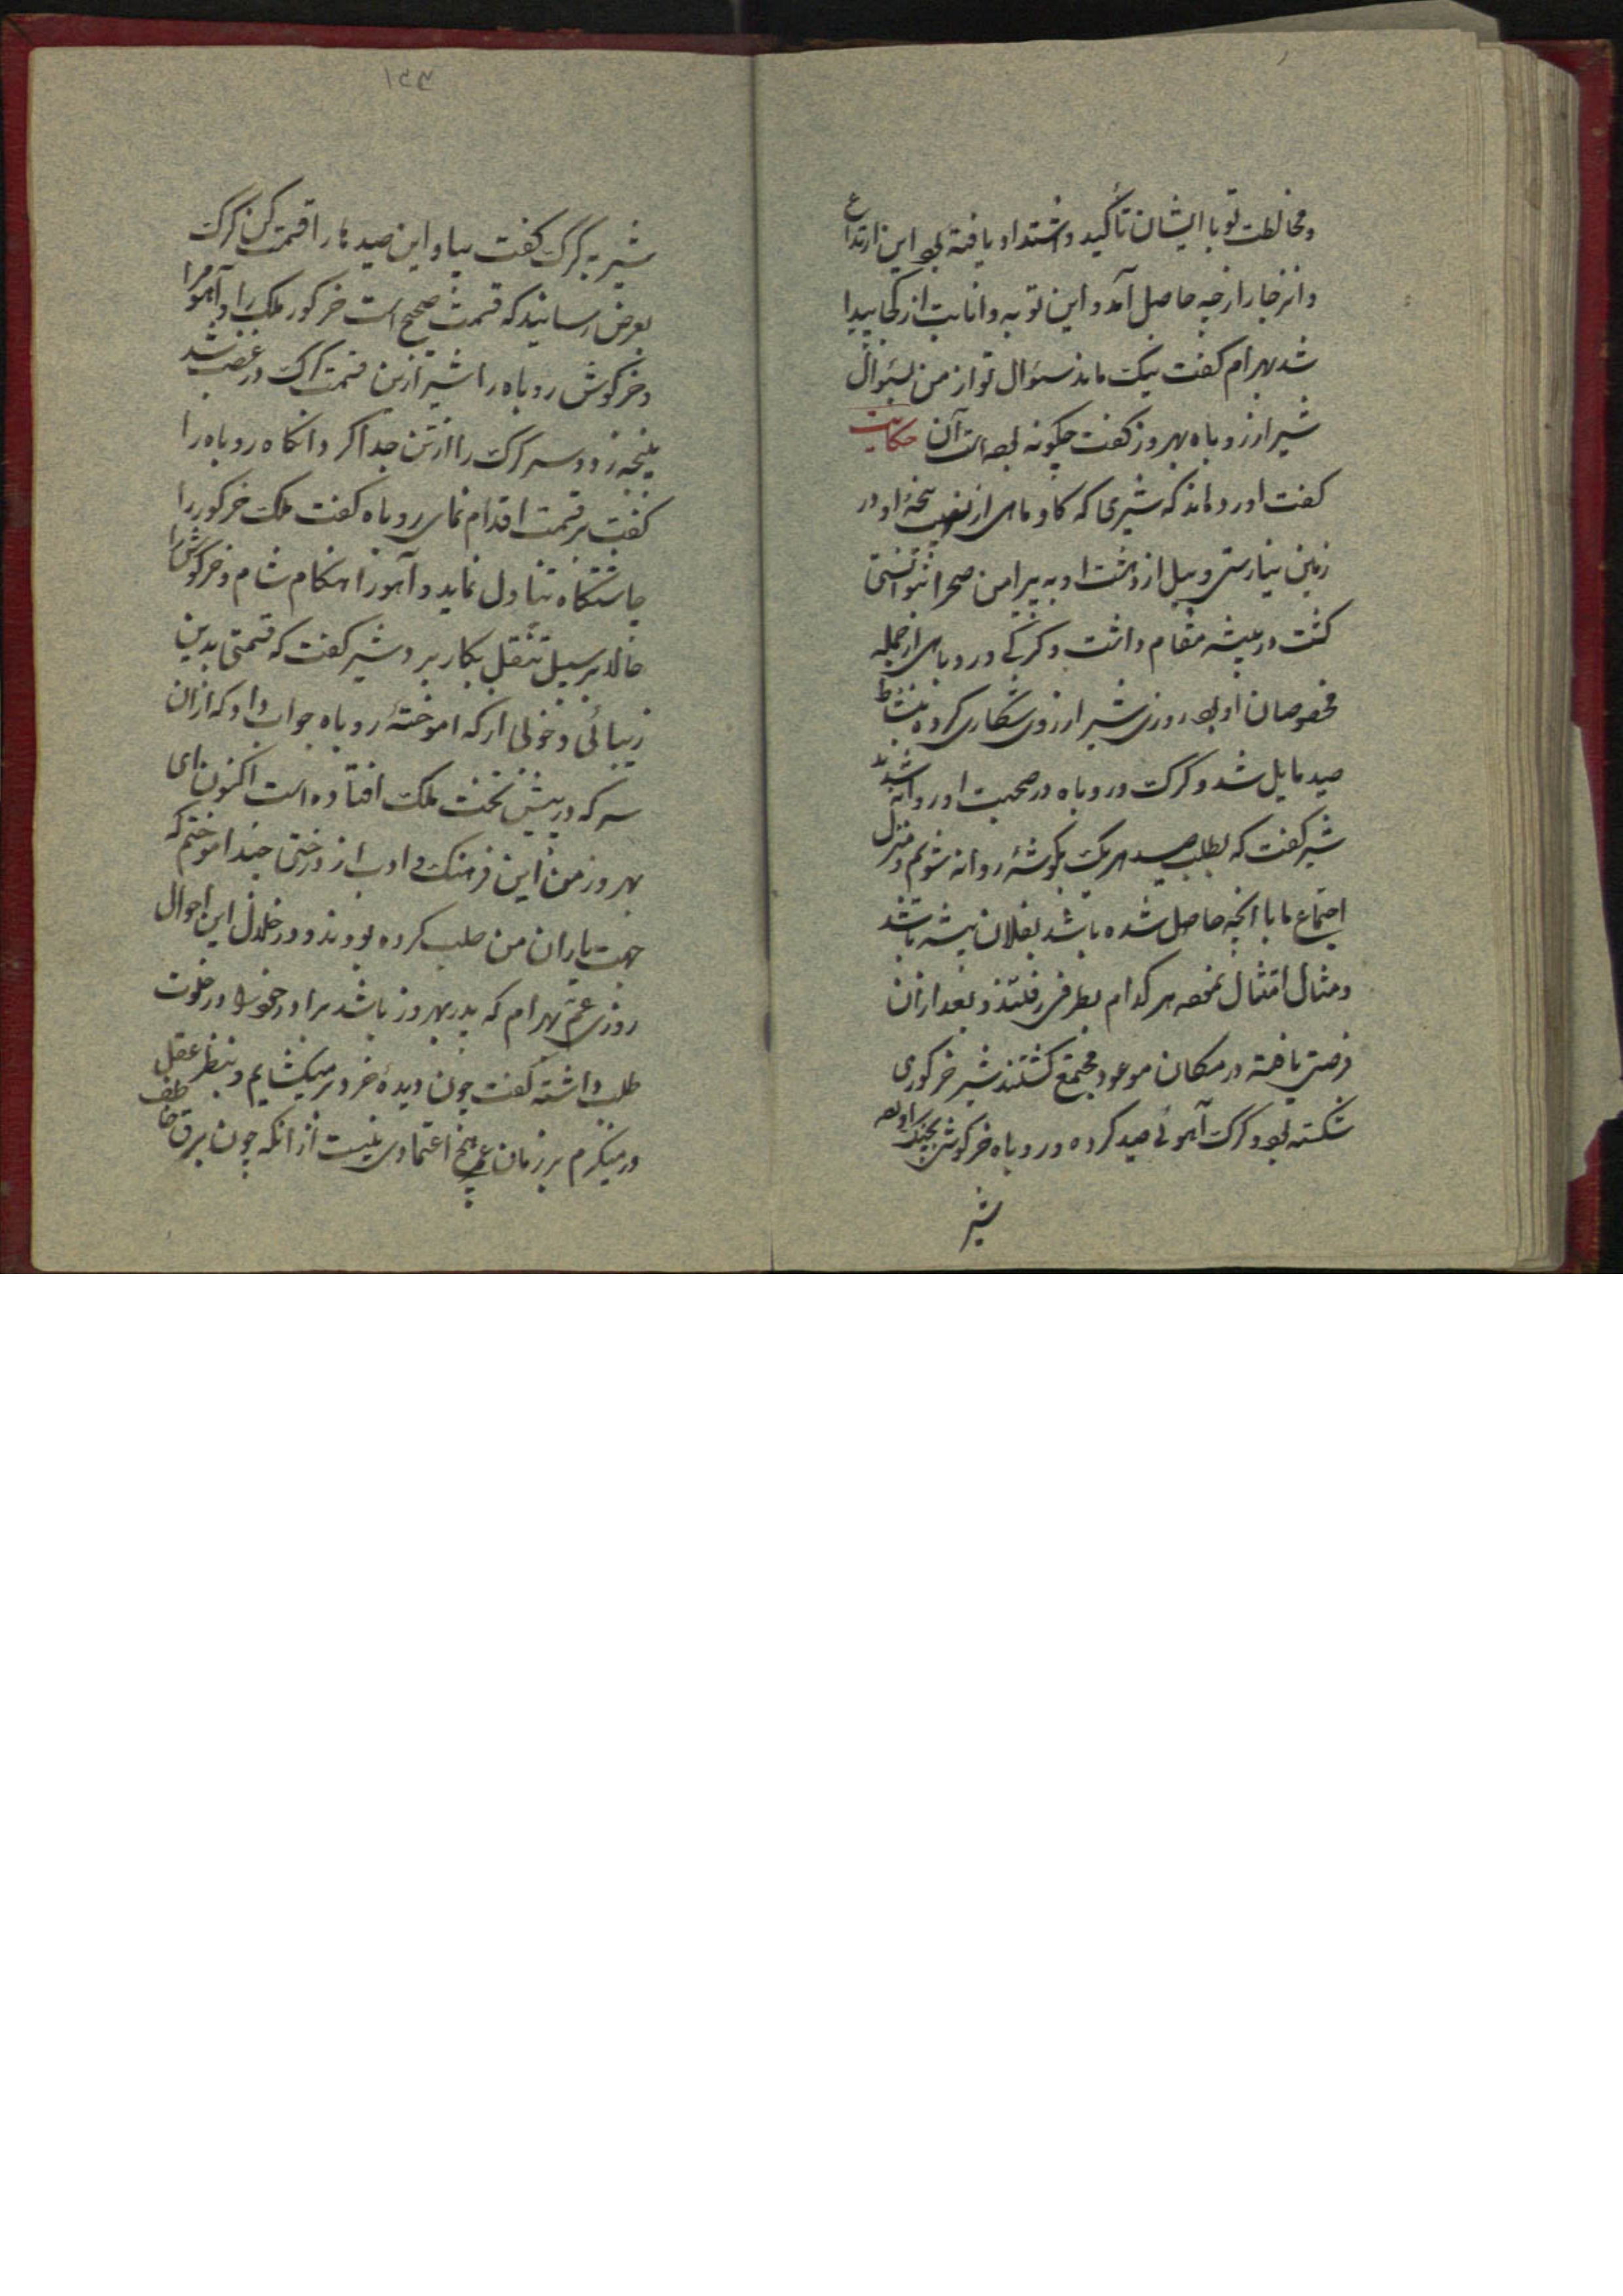 و مخالطت تو با ایشان تأکید و اشتداد یافته بود این ارتداع
و انزجار از چه حاصل آمد و این توبه و انابت از کجا پیدا
شد بهرام کفت نیک ماند سئوال تو از من بسئوال
شیر از روباه بهروز کفت چکونه بوده است آن حکایت
کفت اورده‌اند که شیری که کاو ماهی از نهیب پنجۀ او در
زمین نیارستی و پیل از دهشت او به پیرامن صحرا نتوانستی
کشت در بیشه مقام داشت و کرکی و روباهی از جمله
مخصوصان او بود روزی شیر ارزوی شکاری کرده بنشاط
صید مایل شد و کرک و روباه در صحبت او روانه شدند
شیر کفت که بطلب صید هر یک بکوشۀ روانه شویم و منزل
اجتماع ما با انچه حاصل شده باشد بفلان بیشه باشد
و مثال امتثال نموده هر کدام بطرفی رفتند و بعد ازان
فرصتی یافته در مکان موعود مجتمع کشتند شیر خرکوری
شکسته بود و کرک آهوئی صید کرده و روباه خرکوشی بچنک اورده
شیر
۱۴۳
شیر به کرک کفت بیا و این صیدها را قسمت کن کرک
بعرض رسانید که قسمت صحیح است خرکور ملک را و آهو مرا
و خرکوش روباه را شیر ازین قسمت کرک در غضب شد
پنجه زد و سر کرک را از تن جدا کرد وانکاه روباه را
کفت بر قسمت اقدام نمای روباه کفت ملک خرکور را
چاشتکاه تناول نماید و آهو را هنکام شام و خرکوش را
حالا بر سبیل تنقل بکار برد شیر کفت که قسمتی بدین
زیبائی و خوبی از که اموختۀ روباه جواب داد که ازان
سر که در پیش تخت ملک افتاده است اکنون ای
بهروز من این فرهنک و ادب از درختی چند اموختم که
جهت یاران من صلب کرده بودند و در خلال این احوال
روزی عم بهرام که پدر بهروز باشد برادرزادۀ خود را در خلوت
طلب داشته کفت چون دیدۀ خرد بر میکشایم و بنظر عقل
در مینکرم بر زمان عمر هیچ اعتمادی نیست از انکه چون برق خاطف